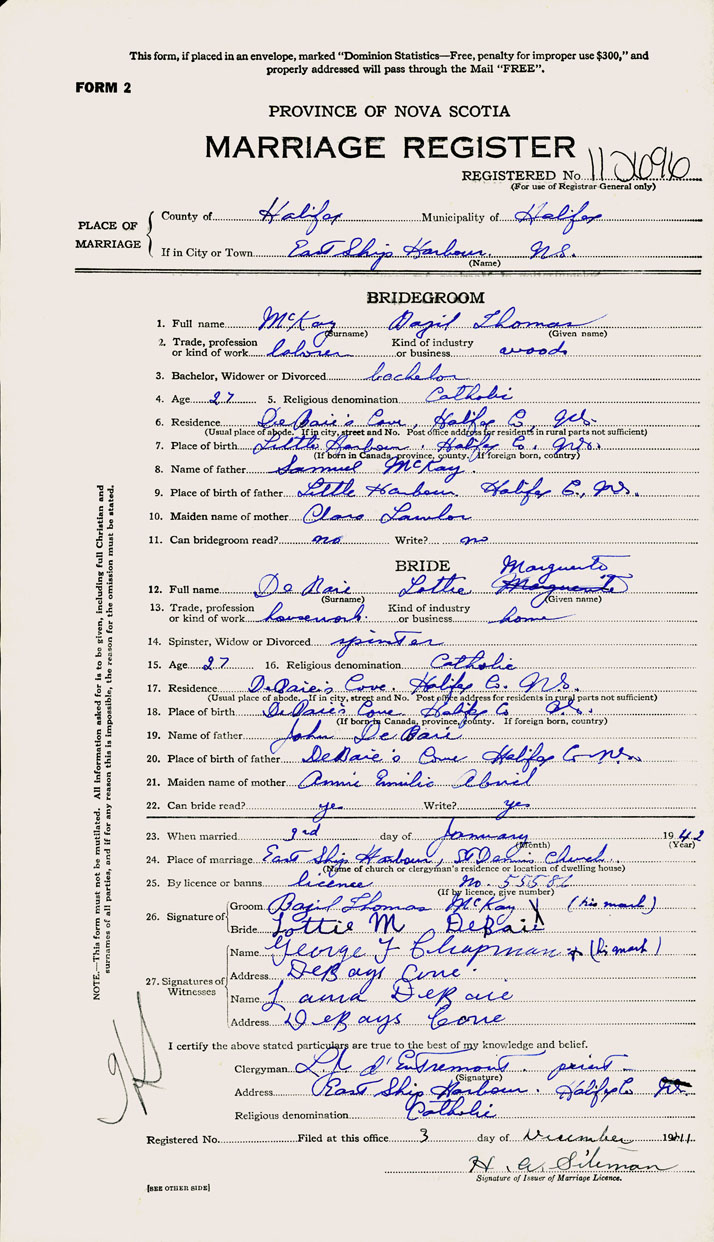 This form, if placed in an envelope, marked "Dominion Statistics—Free, penalty for improper use $300," and
properly addressed will pass through the Mail "FREE".
FORM 2
PROVINCE OF NOVA SCOTIA
MARRIAGE REGISTER
REGISTERED No.
(For use of Registrar-General only)
PLACE OF MARRIAGE
County of Halifax Municipality of Halifax
If in City or Town East Ship Harbour, N.S.
(Name)
BRIDEGROOM
1. Full name McKay Bazil Thomas
(Surname) (Given name)
2. Trade, profession or kind of work laborer Kind of industry or business woods
3. Bachelor, Widower or Divorced bachelor
4. Age 27 5. Religious denomination Catholic
6. Residence DeBaie's Cove, Halifax C., N.S.
(Usual place of abode. If in city, street and No. Post office address for residents in rural parts not sufficient)
7. Place of birth Little Harbour, Halifax C., N.S.
(If born in Canada, province, county. If foreign born, country)
8. Name of father Samuel McKay.
9. Place of birth of father Little Harbour Halifax C., N.S.
10. Maiden name of mother Clara Lawlor
11. Can bridegroom read? no Write? no
BRIDE Marguerite
12. Full name DeBaie Lottie Marguerite
(Surname) (Given name)
13. Trade, profession or kind of work housework. Kind of industry or business home
14. Spinster, Widow or Divorced spinter
15. Age 27 16. Religious denomination Catholic
17. Residence DeBaie's Cove, Halifax C. N.S.
(Usual place of abode. If in city, street and No. Post office address for residents in rural parts not sufficient)
18. Place of birth DeBaie's Cove Halifax C N.S.
(If born in Canada, province, county. If foreign born, country)
19. Name of father John DeBaie
20. Place of birth of father DeBaie's Cove Halifax C N.S.
21. Maiden name of mother Annie Emilie
22. Can bride read? yes Write? yes
23. When married 3rd day of January 1942
(Month) (Year)
24. Place of marriage East Ship Harbour, St Denis Church.
(Name of church or clergyman's residence or location of dwelling house)
25. By licence or banns licence No. 55586
(If by licence, give number)
26. Signature of
Groom Bazil Thomas McKay X (his mark)
Bride Lottie M DeBaie
27. Signatures of Witnesses
Name George F Chapman + (his mark)
Address DeBays Cove.
Name Laura DeBaie
Address DeBays Cove
I certify the above stated particulars are true to the best of my knowledge and belief.
Clergyman d'Entremont. priest
(Signature)
Address East Ship Harbour. Halifax C N.S.
Religious denomination Catholic
Registered No. Filed at this office 3 day of December 1941.
H. A. Siteman
Signature of Issuer of Marriage Licence.
[SEE OTHER SIDE]
NOTE.—This form must not be mutilated. All information asked for is to be given, including full Christian and
surnames of all parties, and if for any reason this is impossible, the reason for the omission must be stated.